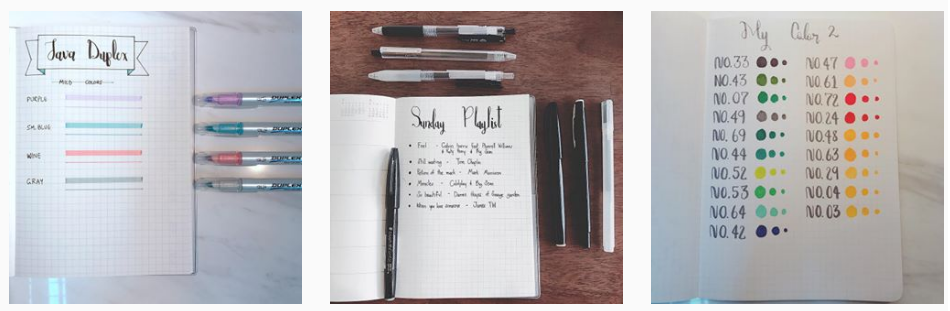 Java Duplex
MILD COLORS
PURPLE
SM. BLUE
WINE
GRAY
DUPLEX
DUPLEX
DUPLEX
DUPLEX
Sunday Playlist
Feel - Calvin Harris feat. Pharrell Williams
& Katy Perry & Big Sean
Still waiting - Tom Chaplin
Return of the mack - Mark Morrison
Miracles - Coldplay & Big Sean
So beautiful - Darren Hayes & Savage garden
When you love someone - James TW
My Color 2
NO.33
NO.43
NO.07
NO.49
NO.69
NO.44
NO.52
NO.53
NO.64
NO.42
NO.47
NO.61
NO.72
NO.24
NO.48
NO.63
NO.29
NO.04
NO.03